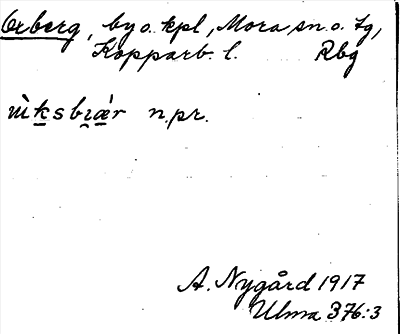 Oxberg, by o. kpl, Mora sn. o. tg,
Kopparb. l. Rbg
ùksbɪær n.pr.
A. Nygård 1917
Ulma 376:3